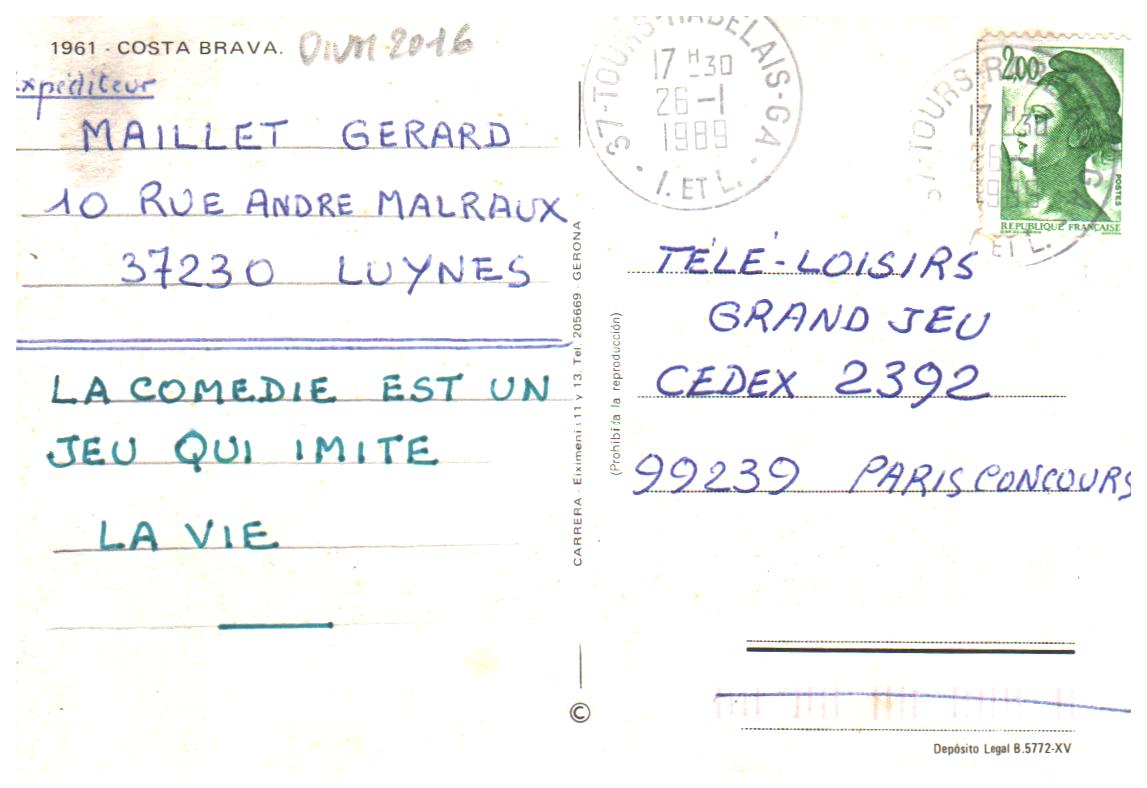 1961 - COSTA BRAVA.
2016
Expéditeur
MAILLET GERARD
10 RUE ANDRE MALRAUX
37230 LUYNES
LA COMEDIE EST UN
JEU QUI IMITE
LA VIE
CARRERA - Eiximenis 11 y 13. Tel. 205669 - GERONA
(Prohibida la reproducción)
©
37-TOURS-RABELAIS-GA
17 H 30
26-1
1989
I. ET L.
2,00
POSTES
REPUBLIQUE FRANÇAISE
37-TOURS-RABELAIS-GA
17 H 30
26-1
1989
I. ET L.
TÉLÉ-LOISIRS
GRAND JEU
CEDEX 2392
99239 PARIS CONCOURS
Depósito Legal B.5772-XV